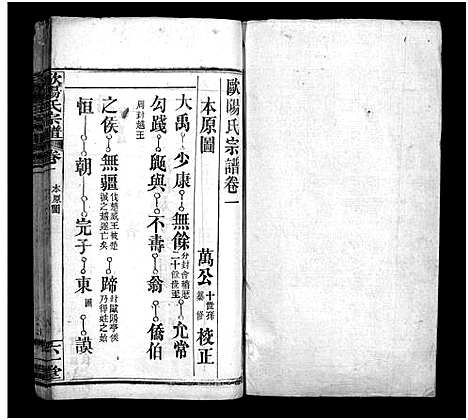 歐陽氏宗譜卷一
本原圖
萬公十世孫纂修校正
大禹 少康 無餘 分封會稽歷二十世至 允常
勾踐 與 不壽 翁 僑伯
周封越王
之侯 無疆 伐楚威王被楚滅之越遂亡矣 蹄 封歐陽亭侯乃得姓之始
恒 朝 完子 東 謨
歐陽氏宗譜 卷一 本原圖
六一堂